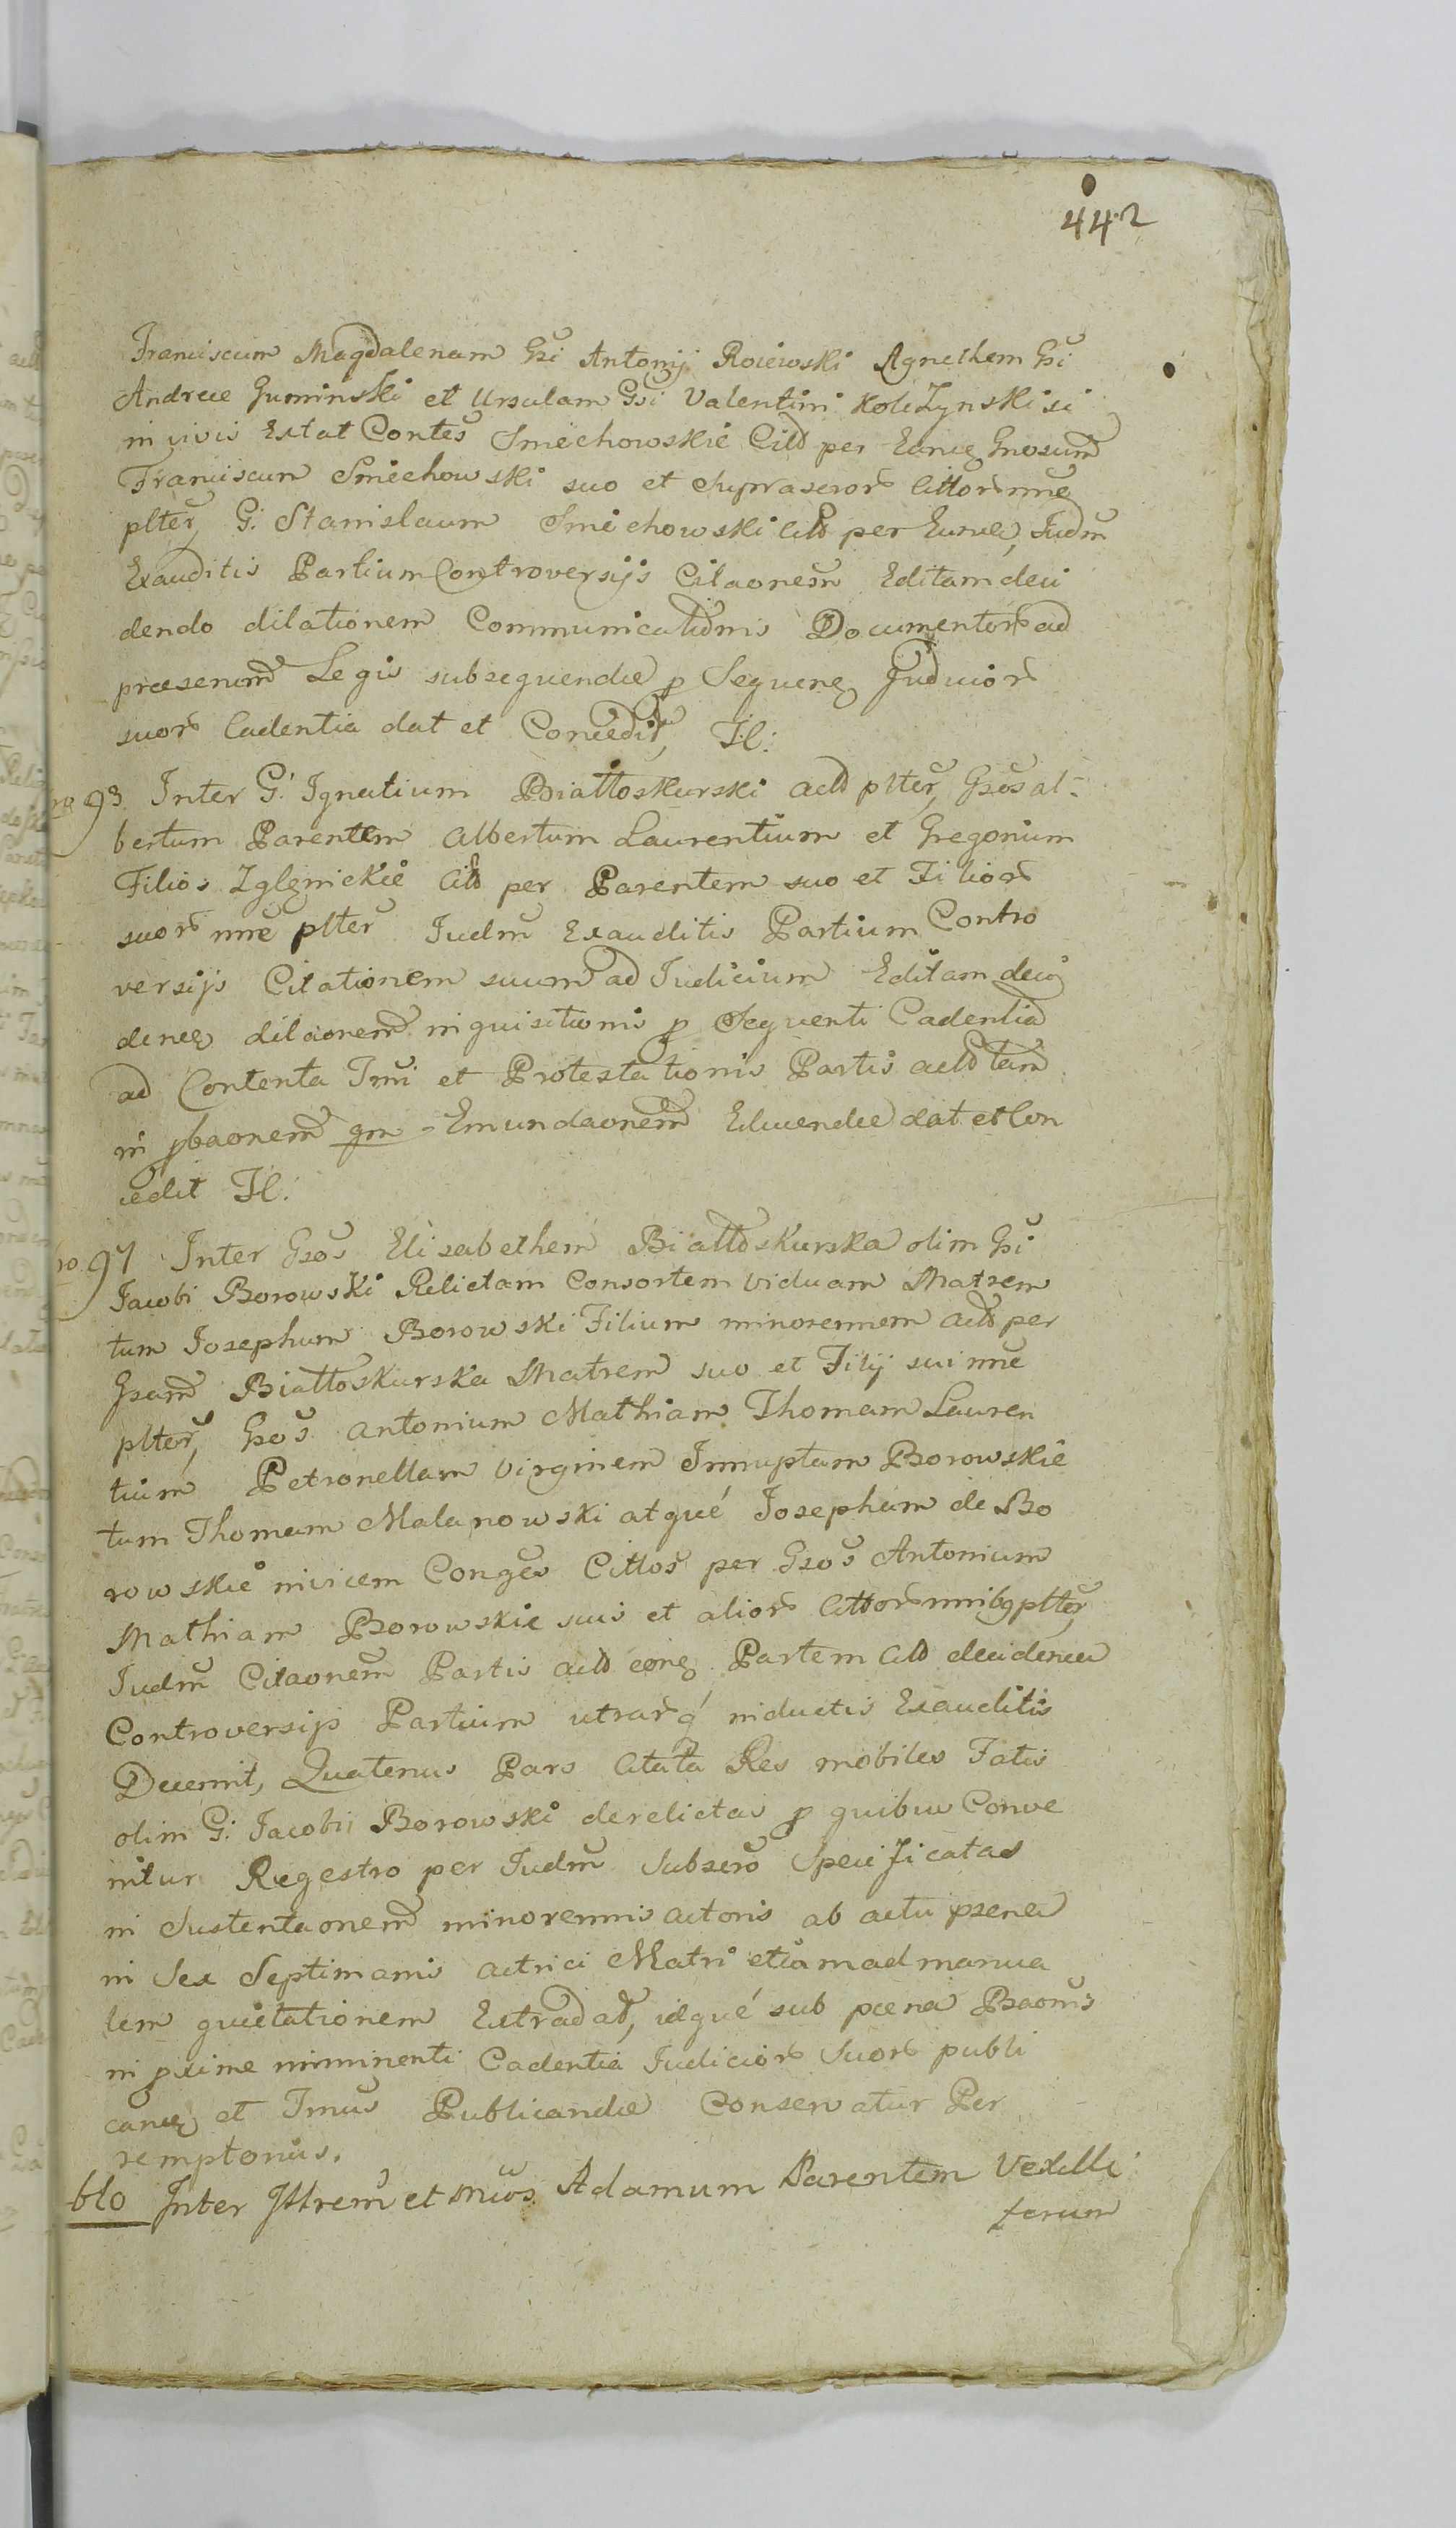 442
Franciscum Magdalenam Gsi Antonij Roiewski Agnethem Gsi
Andreae Guminski et Ursulam Gsi Valentini Koliżynski si
in vivis Extat Contes Smiechowskie Citt per Eunq Gnosum
Franciscum Smiechowski suo et suprascror Cittor nne
plter, G. Stanislaum Smiechowski Citt per Eunde, Iudm
Exauditis Partium Controversijs Citaonem Editam deci
dendo dilationem Communicationis Documentor ad
praesenm Legis subsequendae p Sequenq Judicior
suor Cadentia dat et Concedit, Il:
no 93 Inter G. Ignatium Białłoskurski actt plter, Gsos al-
bertum Parentem Albertum Laurentium et Gregorium
Filios Zglęnickie Citt per Parentem suo et Filior
suor nne plter Iudm Exauditis Partium Contro
versijs Citationem suum ad Iudicium Editam deci
denq dilaonem inquisitionis p Sequenti Cadentia
ad Contenta Tmi et Protestationis Partis actt tam
in pbaonem qm Emundaonem Educendae dat et Con
cedit Il:
no. 94 Inter Gsos Elisabethem Białłoskurska olim Gsi
Iacobi Borowski Relictam Consortem viduam Matrem
tum Iosephum Borowski Filium minorennem actt per
Gsam Białłoskurska Matrem suo et Filij sui nne
plter, Gsos Antonium Mathiam Thomam Lauren
tium Petronellam Virginem Innuptam Borowskie
tum Thomam Malanowski atqué Iosepham de Bo
rowskie invicem Conges Cittos per Gsos Antonium
Mathiam Borowskie suis et alior Cittor nnibq plter,
Iudm Citaonem Partis actt conq Partem Citt decidenda
Controversijs Partium utrarq inductis Exauditis
Decernit, Quatenus Pars Citata Res mobiles Fatis
olim G. Iacobi Borowski derelictas p quibus Conve
nitur Regestro per Iudm Subscro Specificatas
in Sustentaonem minorennis actoris ab actu psenti
in Sex Septimanis actrici Matri etiam ad manua
lem quietationem Extradat, idqué sub paena Baonis
in pxime imminenti Cadentia Iudicior Suor publi
canq et Tmus Publicandae Conservatur Per
remptorius.
blo Inter Illrem et mcos Adamum Parentem Vexilli
ferum